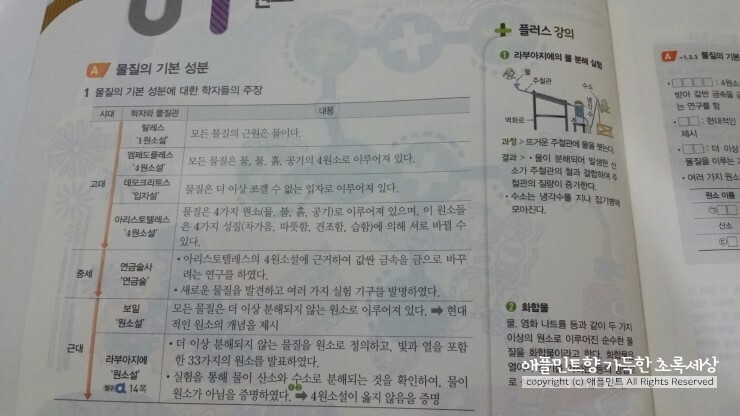 원소
A 물질의 기본 성분
1 물질의 기본 성분에 대한 학자들의 주장
시대 학자와 물질관 내용
고대
탈레스
'1원소설'
모든 물질의 근원은 물이다.
엠페도클레스
'4원소설'
모든 물질은 물, 불, 흙, 공기의 4원소로 이루어져 있다.
데모크리토스
'입자설'
물질은 더 이상 쪼갤 수 없는 입자로 이루어져 있다.
아리스토텔레스
'4원소설'
물질은 4가지 원소(물, 불, 흙, 공기)로 이루어져 있으며, 이 원소들
은 4가지 성질(차가움, 따뜻함, 건조함, 습함)에 의해 서로 바뀔 수
있다.
중세
연금술사
'연금술'
• 아리스토텔레스의 4원소설에 근거하여 값싼 금속을 금으로 바꾸
려는 연구를 하였다.
• 새로운 물질을 발견하고 여러 가지 실험 기구를 발명하였다.
근대
보일
'원소설'
모든 물질은 더 이상 분해되지 않는 원소로 이루어져 있다. ➡ 현대
적인 원소의 개념을 제시
라부아지에
'원소설'
탐구 a 14쪽
• 더 이상 분해되지 않는 물질을 원소로 정의하고, 빛과 열을 포함
한 33가지의 원소를 발표하였다.
• 실험을 통해 물이 산소와 수소로 분해되는 것을 확인하여, 물이
원소가 아님을 증명하였다. ➡ 4원소설이 옳지 않음을 증명
플러스 강의
1 라부아지에의 물 분해 실험
물
주철관
수소
냉각수
벽화로
과정 > 뜨거운 주철관에 물을 붓는다.
결과 > • 물이 분해되어 발생한 산
소가 주철관의 철과 결합하여 주
철관의 질량이 증가한다.
• 수소는 냉각수를 지나 집기병에
모아진다.
2 화합물
물, 염화 나트륨 등과 같이 두 가지
이상의 원소로 이루어진 순수한 물
질을 화합물이라고 한다. 화합물은
A -1,2,3 물질의 기본
: 4원소
받아 값싼 금속을 금
는 연구를 함
: 현대적인
제시
: 더 이상
물질을 이루는 기
• 여러 가지 원소
원소 이름
산소
애플민트향 가득한 초록세상
copyright (c) 애플민트 All Rights Reserved